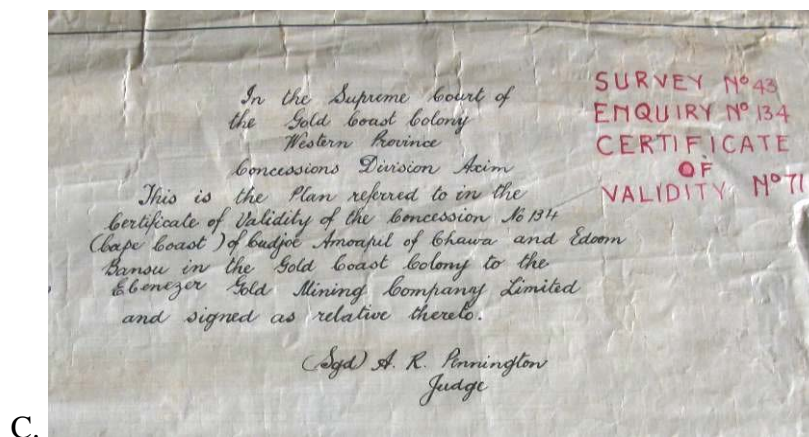 In the Supreme Court of
the Gold Coast Colony
Western Province
Concessions Division Axim
This is the Plan referred to in the
Certificate of Validity of the Concession No 134
(Cape Coast) of Cudjoe Amoapil of Chawa and Edoom
Bansu in the Gold Coast Colony to the
Ebenezer Gold Mining Company Limited
and signed as relative thereto.
(Sgd) A. R. Pennington
Judge
SURVEY No 43
ENQUIRY No 134
CERTIFICATE
OF
VALIDITY No 71
C.